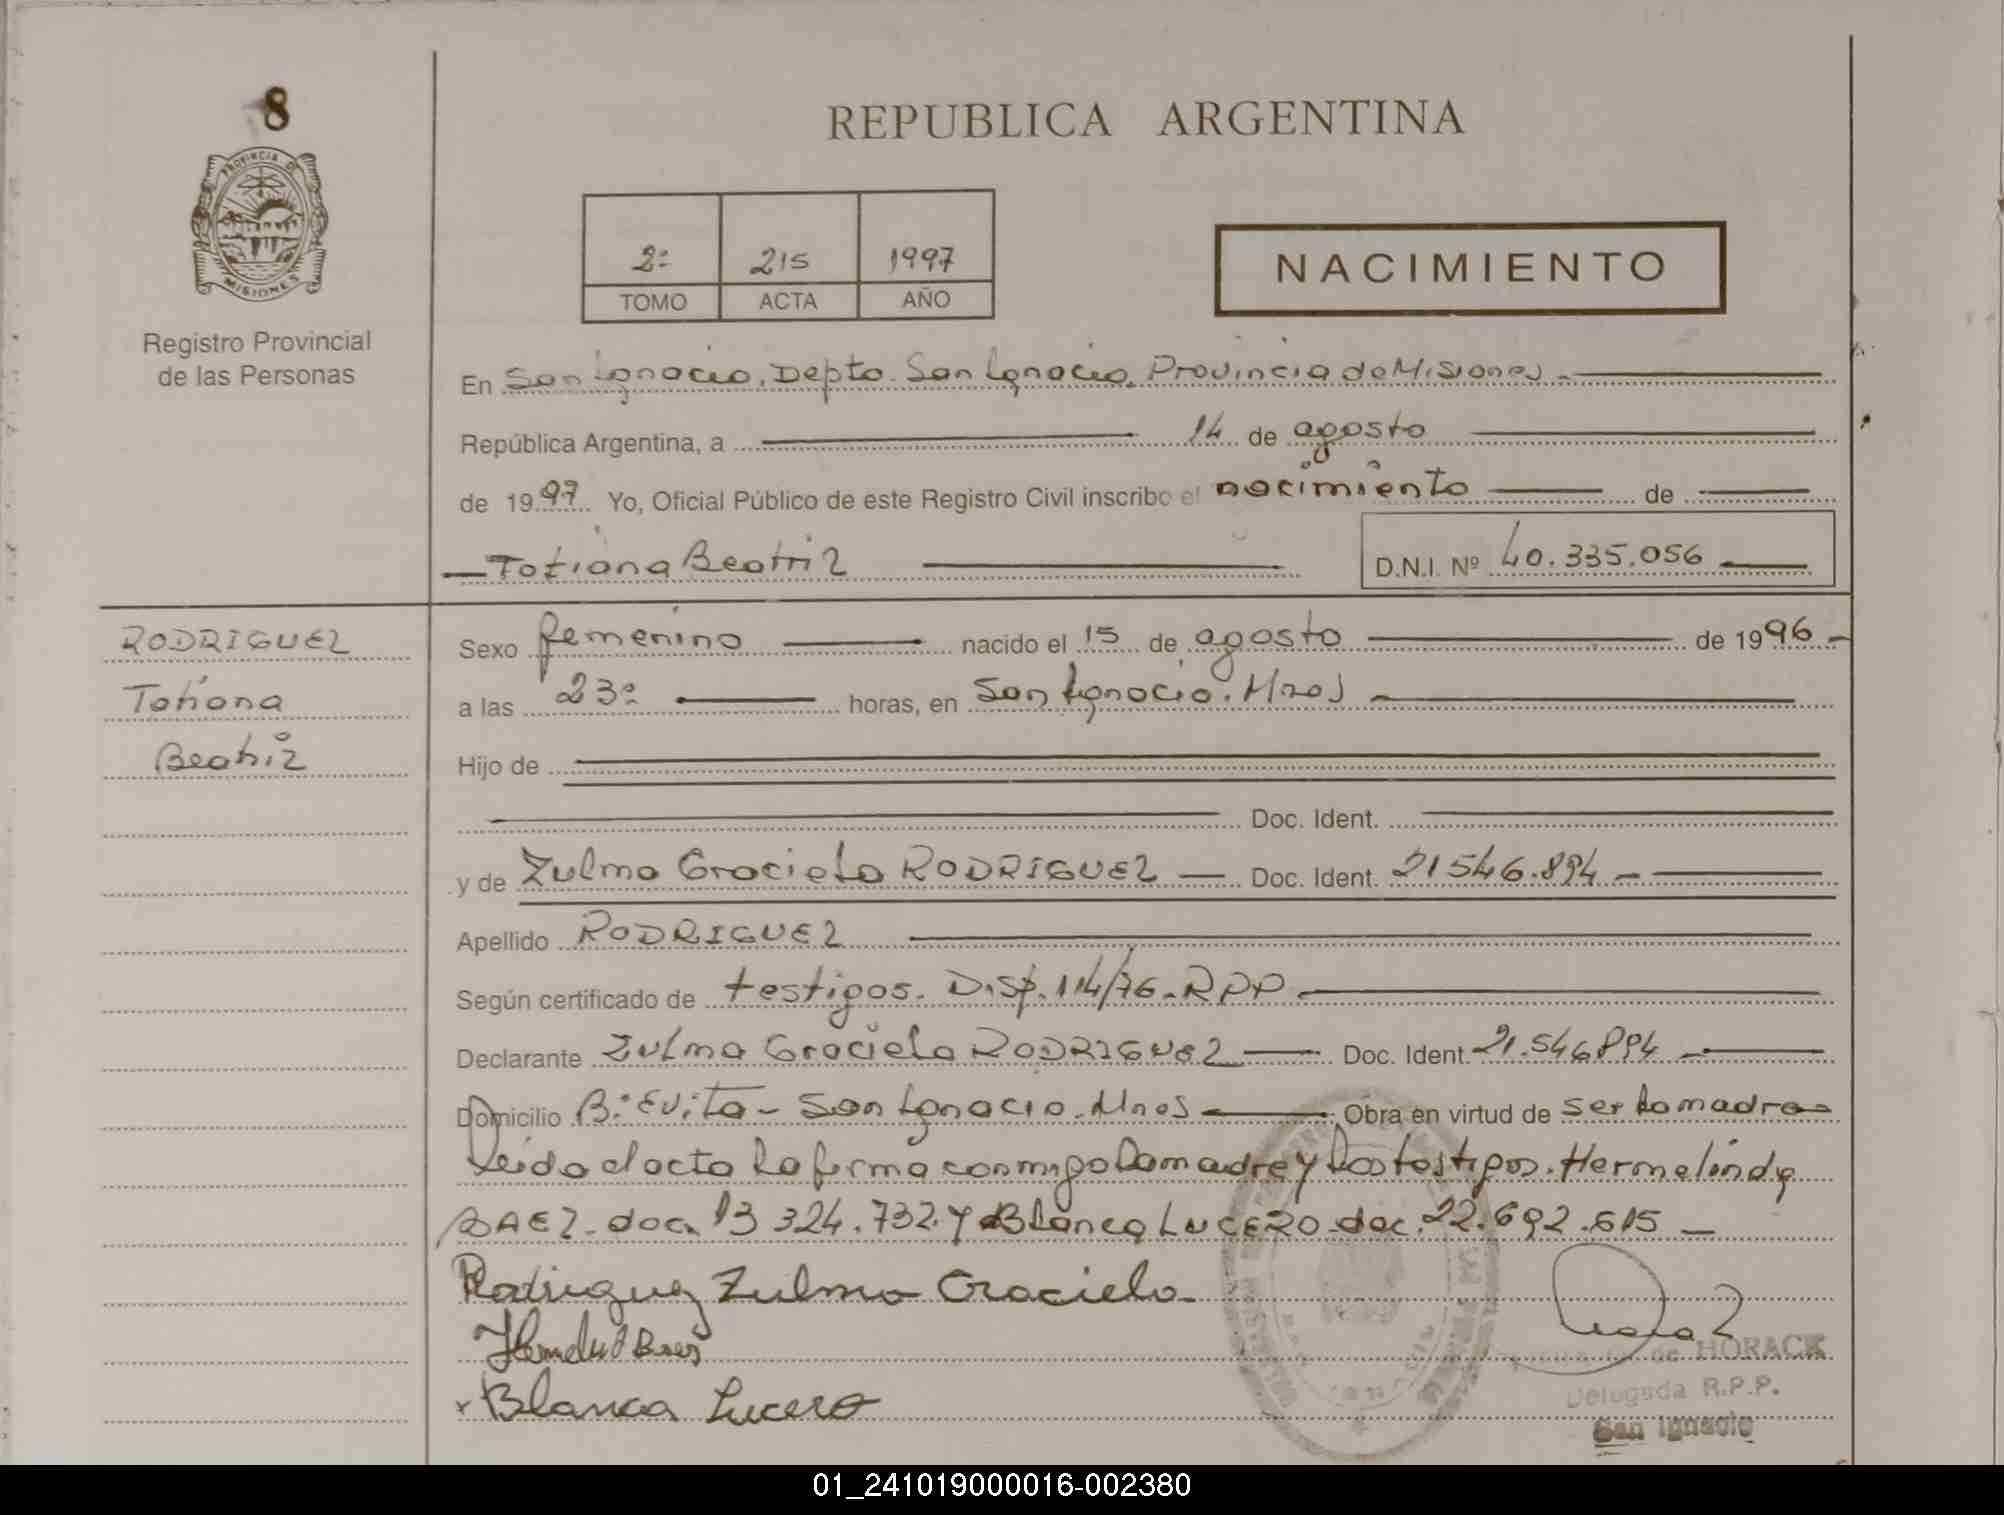 8
PROVINCIA DE
MISIONES
Registro Provincial
de las Personas
REPUBLICA ARGENTINA
2º 215 1997
TOMO ACTA AÑO
NACIMIENTO
En San Ignacio, Depto. San Ignacio, Provincia de Misiones
República Argentina, a 14 de agosto
de 1997 Yo, Oficial Público de este Registro Civil inscribo el nacimiento de
Tatiana Beatriz D.N.I. Nº 40.335.056
RODRIGUEZ
Tatiana
Beatriz
Sexo femenino nacido el 15 de agosto de 1996
a las 23º horas, en San Ignacio. Mnes
Hijo de
Doc. Ident.
y de Zulma Graciela RODRIGUEZ Doc. Ident. 21546.894
Apellido RODRIGUEZ
Según certificado de testigos. Disp. 114/76-RPP
Declarante Zulma Graciela RODRIGUEZ Doc. Ident. 21.546894
Domicilio Bº Evita - San Ignacio. Mnes Obra en virtud de ser la madre
Leida el acta la firma conmigo la madre y los testigos. Hermelinda
BAEZ. doc. 13 324.732. Y Blanca LUCERO doc. 22.692.615
Rodriguez Zulma Graciela
Baez
Blanca Lucero
de HORACK
Delegada R.P.P.
San Ignacio
01_241019000016-002380